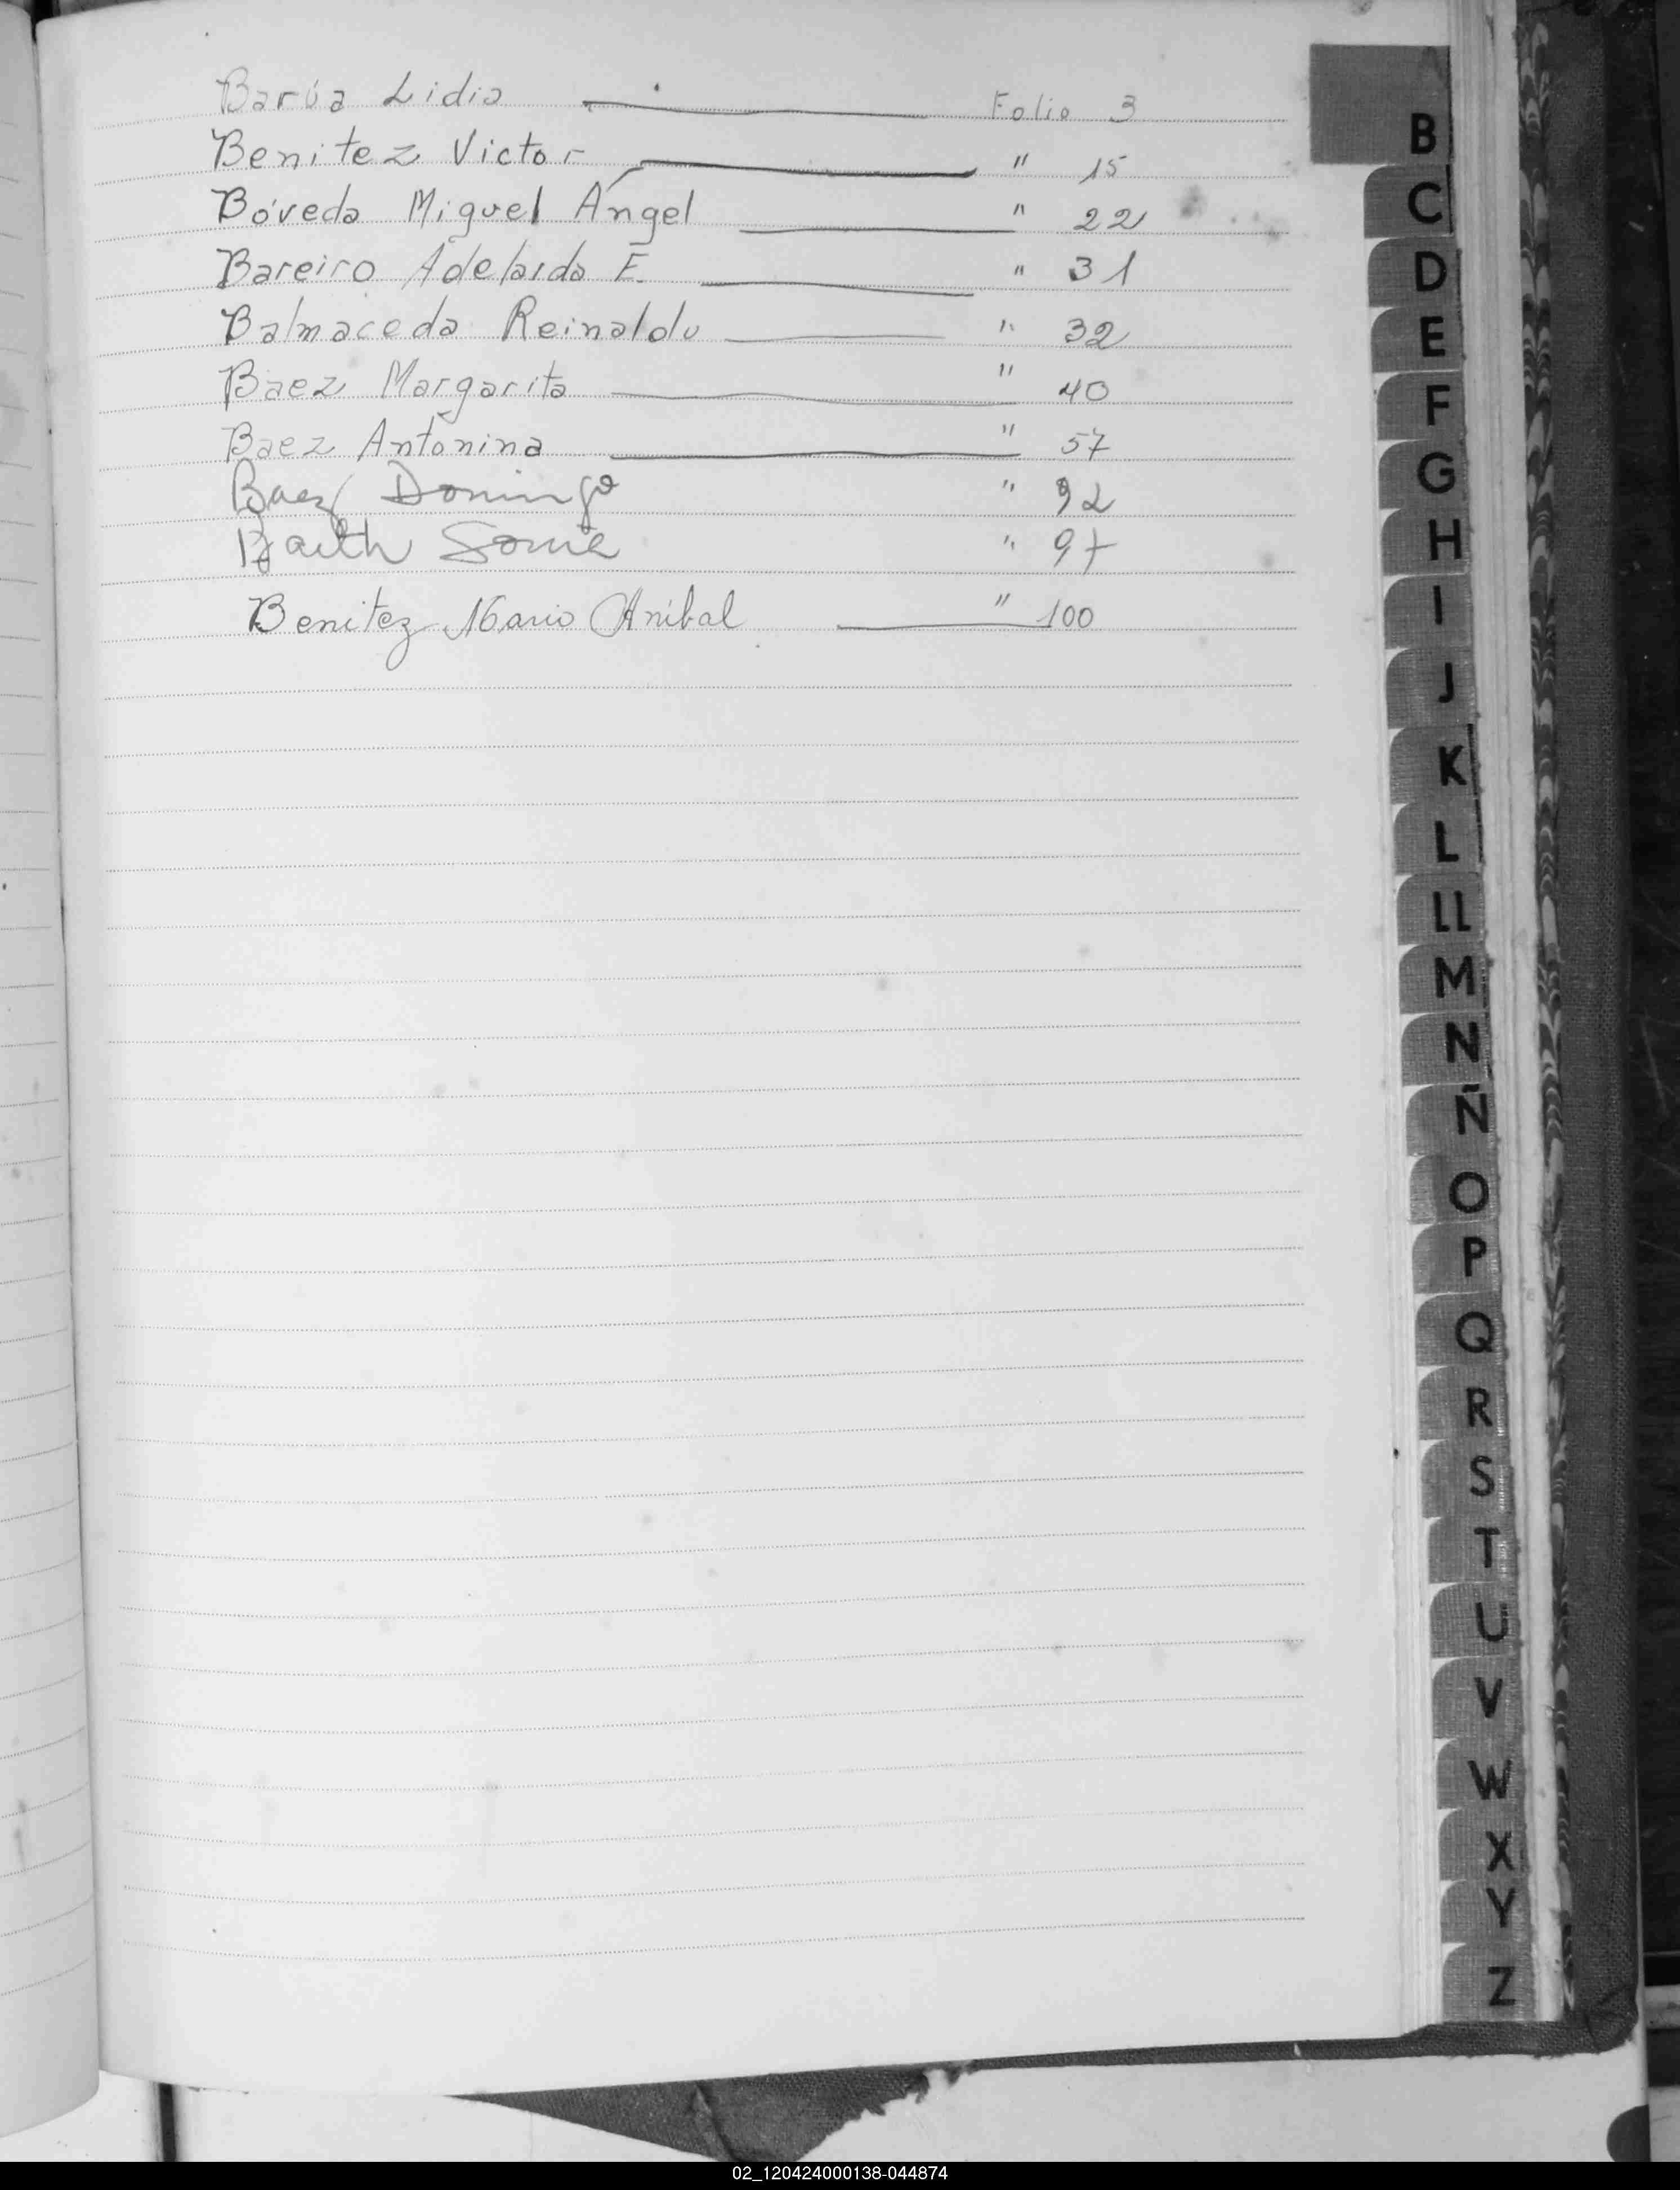 Barúa Lidia Folio 3
Benitez Victor " 15
Bóveda Miguel Ángel " 22
Bareiro Adelaida E. " 31
Balmaceda Reinaldo " 32
Baez Margarita " 40
Baez Antonina " 57
Baez Domingo " 92
Sonia " 97
Benitez Mario Anibal " 100
B
C
D
E
F
G
H
I
J
K
L
LL
M
N
Ñ
O
P
Q
R
S
T
U
V
W
X
Y
Z
02_120424000138-044874